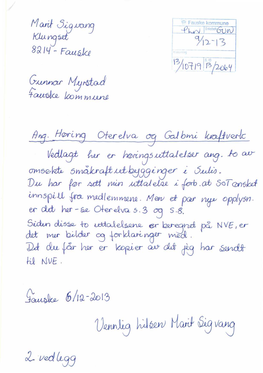 Marit Sigvang
Klungset
8214 - Fauske
Fauske kommune
9/12-13
13/10719 13/2664
Gunnar Myrstad
Fauske kommune
Ang. Høring Oterelva og Galbmi kraftverk.
Vedlagt her er høringsuttalelser ang. to av
omsøkte småkraftutbygginger i Sulis.
Du har før sett min uttalelse i forb. at SoT ønsket
innspill fra medlemmene. Men et par nye opplysn.
er det her - se Oterelva s.3 og s.8.
Siden disse to uttalelsene er beregnet på NVE, er
det mer bilder og forklaringer med.
Det du får her er kopier av det jeg har sendt
til NVE.
Fauske 6/12-2013
Vennlig hilsen Marit Sigvang
2 vedlegg